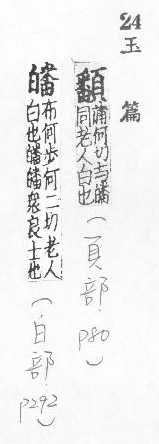 24
玉篇
蒲何切与皤
同老人白也
(頁部. p80)
皤
布何步何二切老人
白也皤皤衆良士也
(白部. p292)